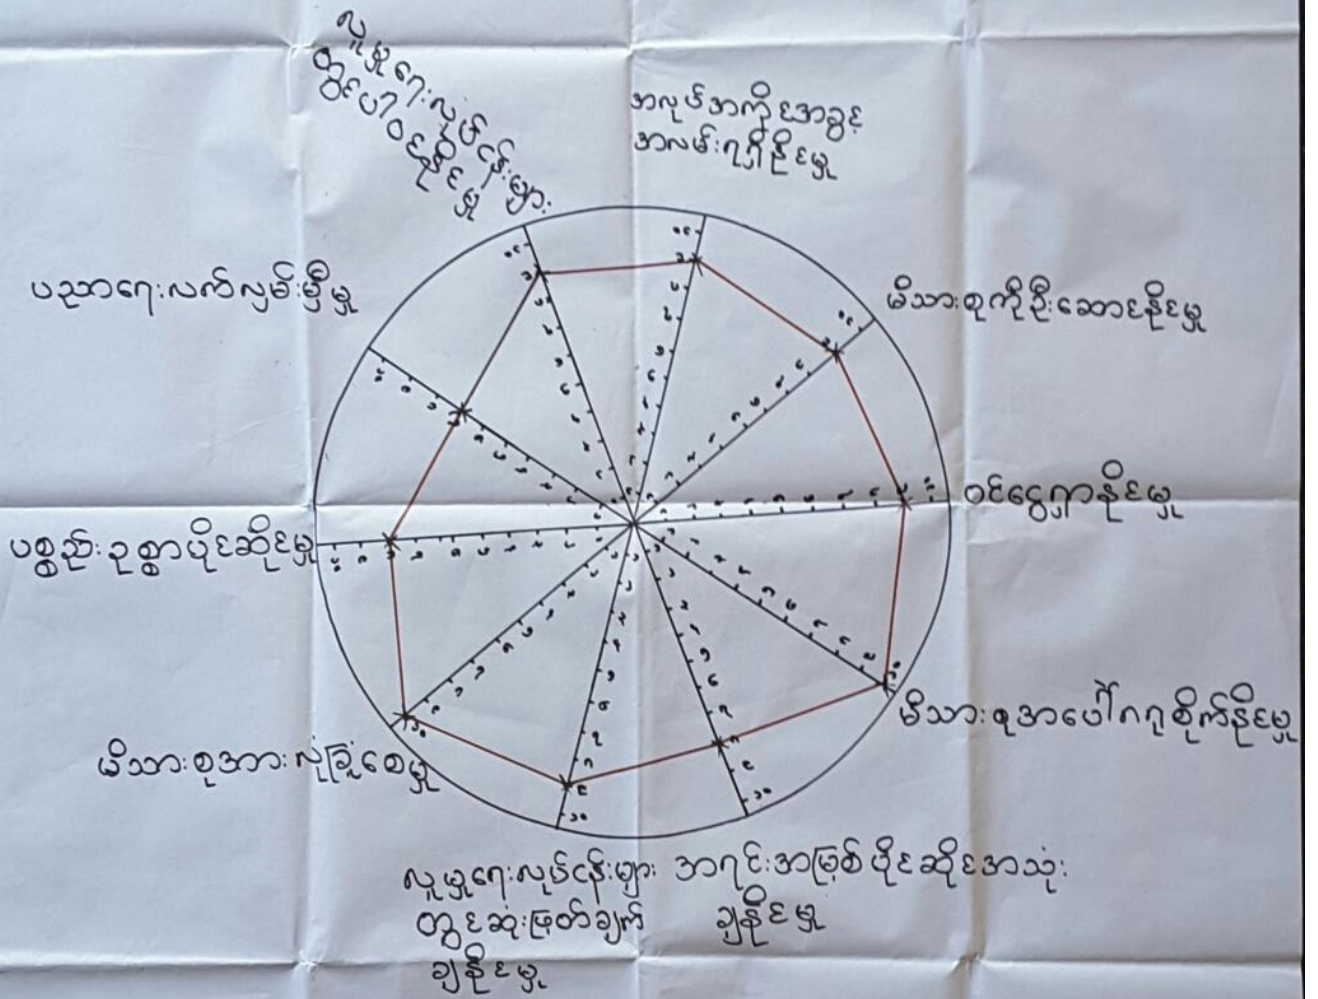 လူမှုရေးလုပ်ငန်းများ
တွင်ပါဝင်နိုင်မှု
အလုပ်အကိုင်အခွင့်
အလမ်းရရှိနိုင်မှု
မိသားစုကိုဦးဆောင်နိုင်မှု
ဝင်ငွေရှာနိုင်မှု
မိသားစုအပေါ်ဂရုစိုက်နိုင်မှု
အရင်းအမြစ်ပိုင်ဆိုင်အသုံး
ချနိုင်မှု
လူမှုရေးလုပ်ငန်းများ
တွင်ဆုံးဖြတ်ချက်
ချနိုင်မှု
မိသားစုအားလုံခြုံစေမှု
ပစ္စည်းဥစ္စာပိုင်ဆိုင်မှု
ပညာရေးလက်လှမ်းမှီမှု